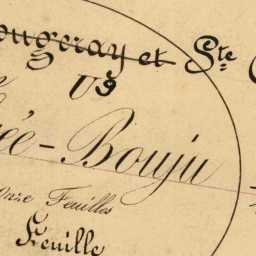 ougeray et Ste
V3
ée-Bouju
onze Feuilles
Feuille